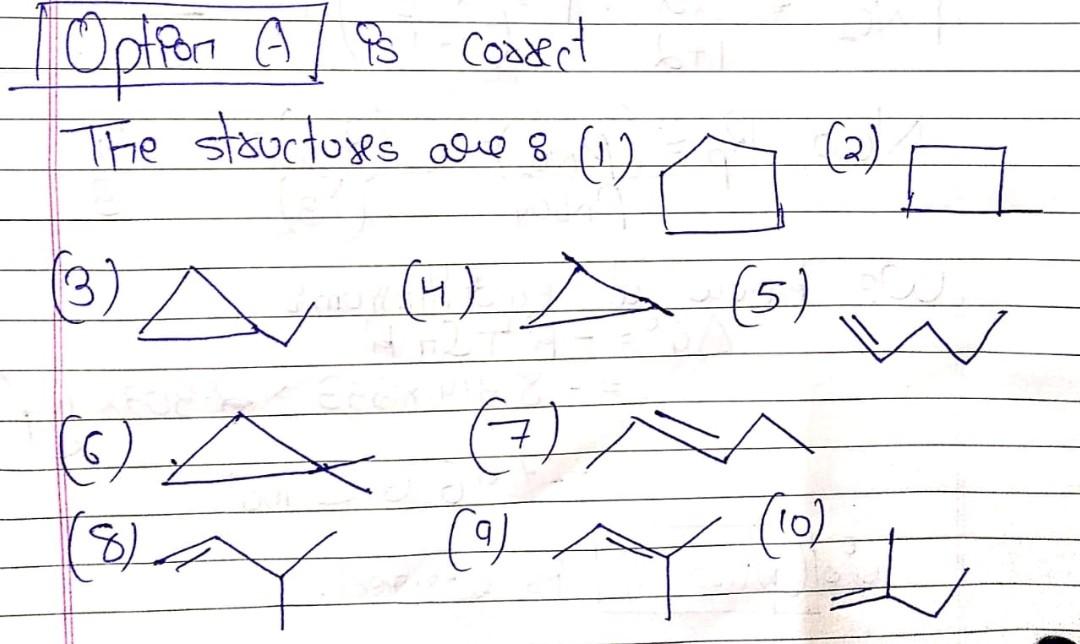 Option A is correct
The structures are : (1) (2)
(3) (4) (5)
(6) (7)
(8) (9) (10)